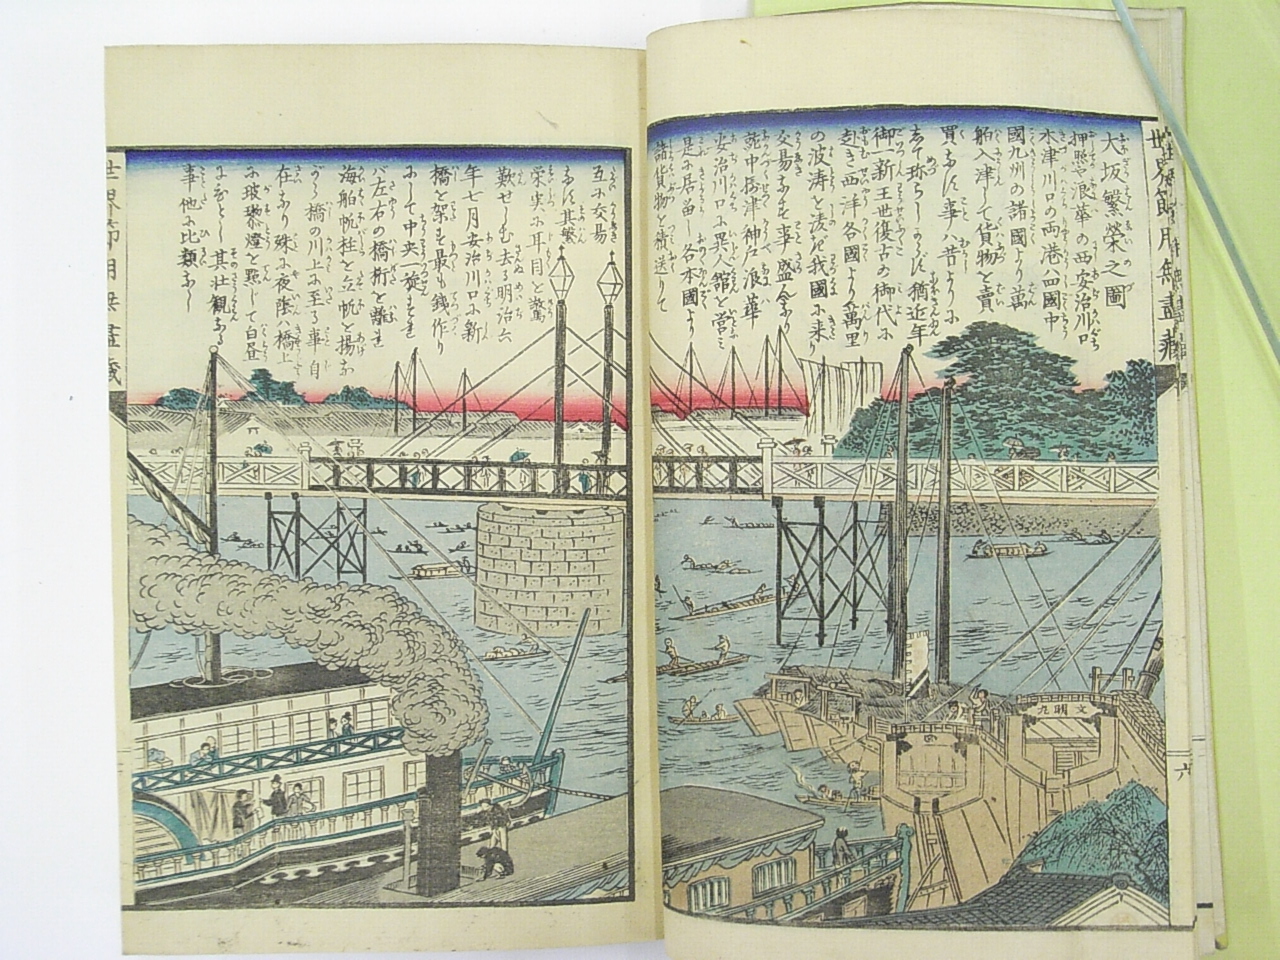 大坂繁榮之圖
押照や浪華の西安治川口
木津川口の両港ハ四國中
國九州の諸國より萬
舶入津して貨物を賣
買なす事ハ昔よりに
して珍らしからず猶近年
御一新王世復古の御代に
赴き西洋各國より萬里
の波涛を凌ぎ我國に来り
交易なす事盛んなり
就中摂津神戸浪華
安治川口に異人館を営ミ
是に居畄し各本國より
諸貨物を積送りて
互に交易
なす其繁
栄実に耳目を驚
歎せしむ去る明治六
年七月安治川口に新
橋を架す最も銕作り
にして中央一旋すれ
バ左右の橋桁を離れ
海舶帆柱を立帆を揚な
がら橋の川上に至る事自
在なり殊に夜陰ハ橋上
に玻璃燈を點じて白昼
の如し其壮観なる
事他に比類なし
文明丸
六